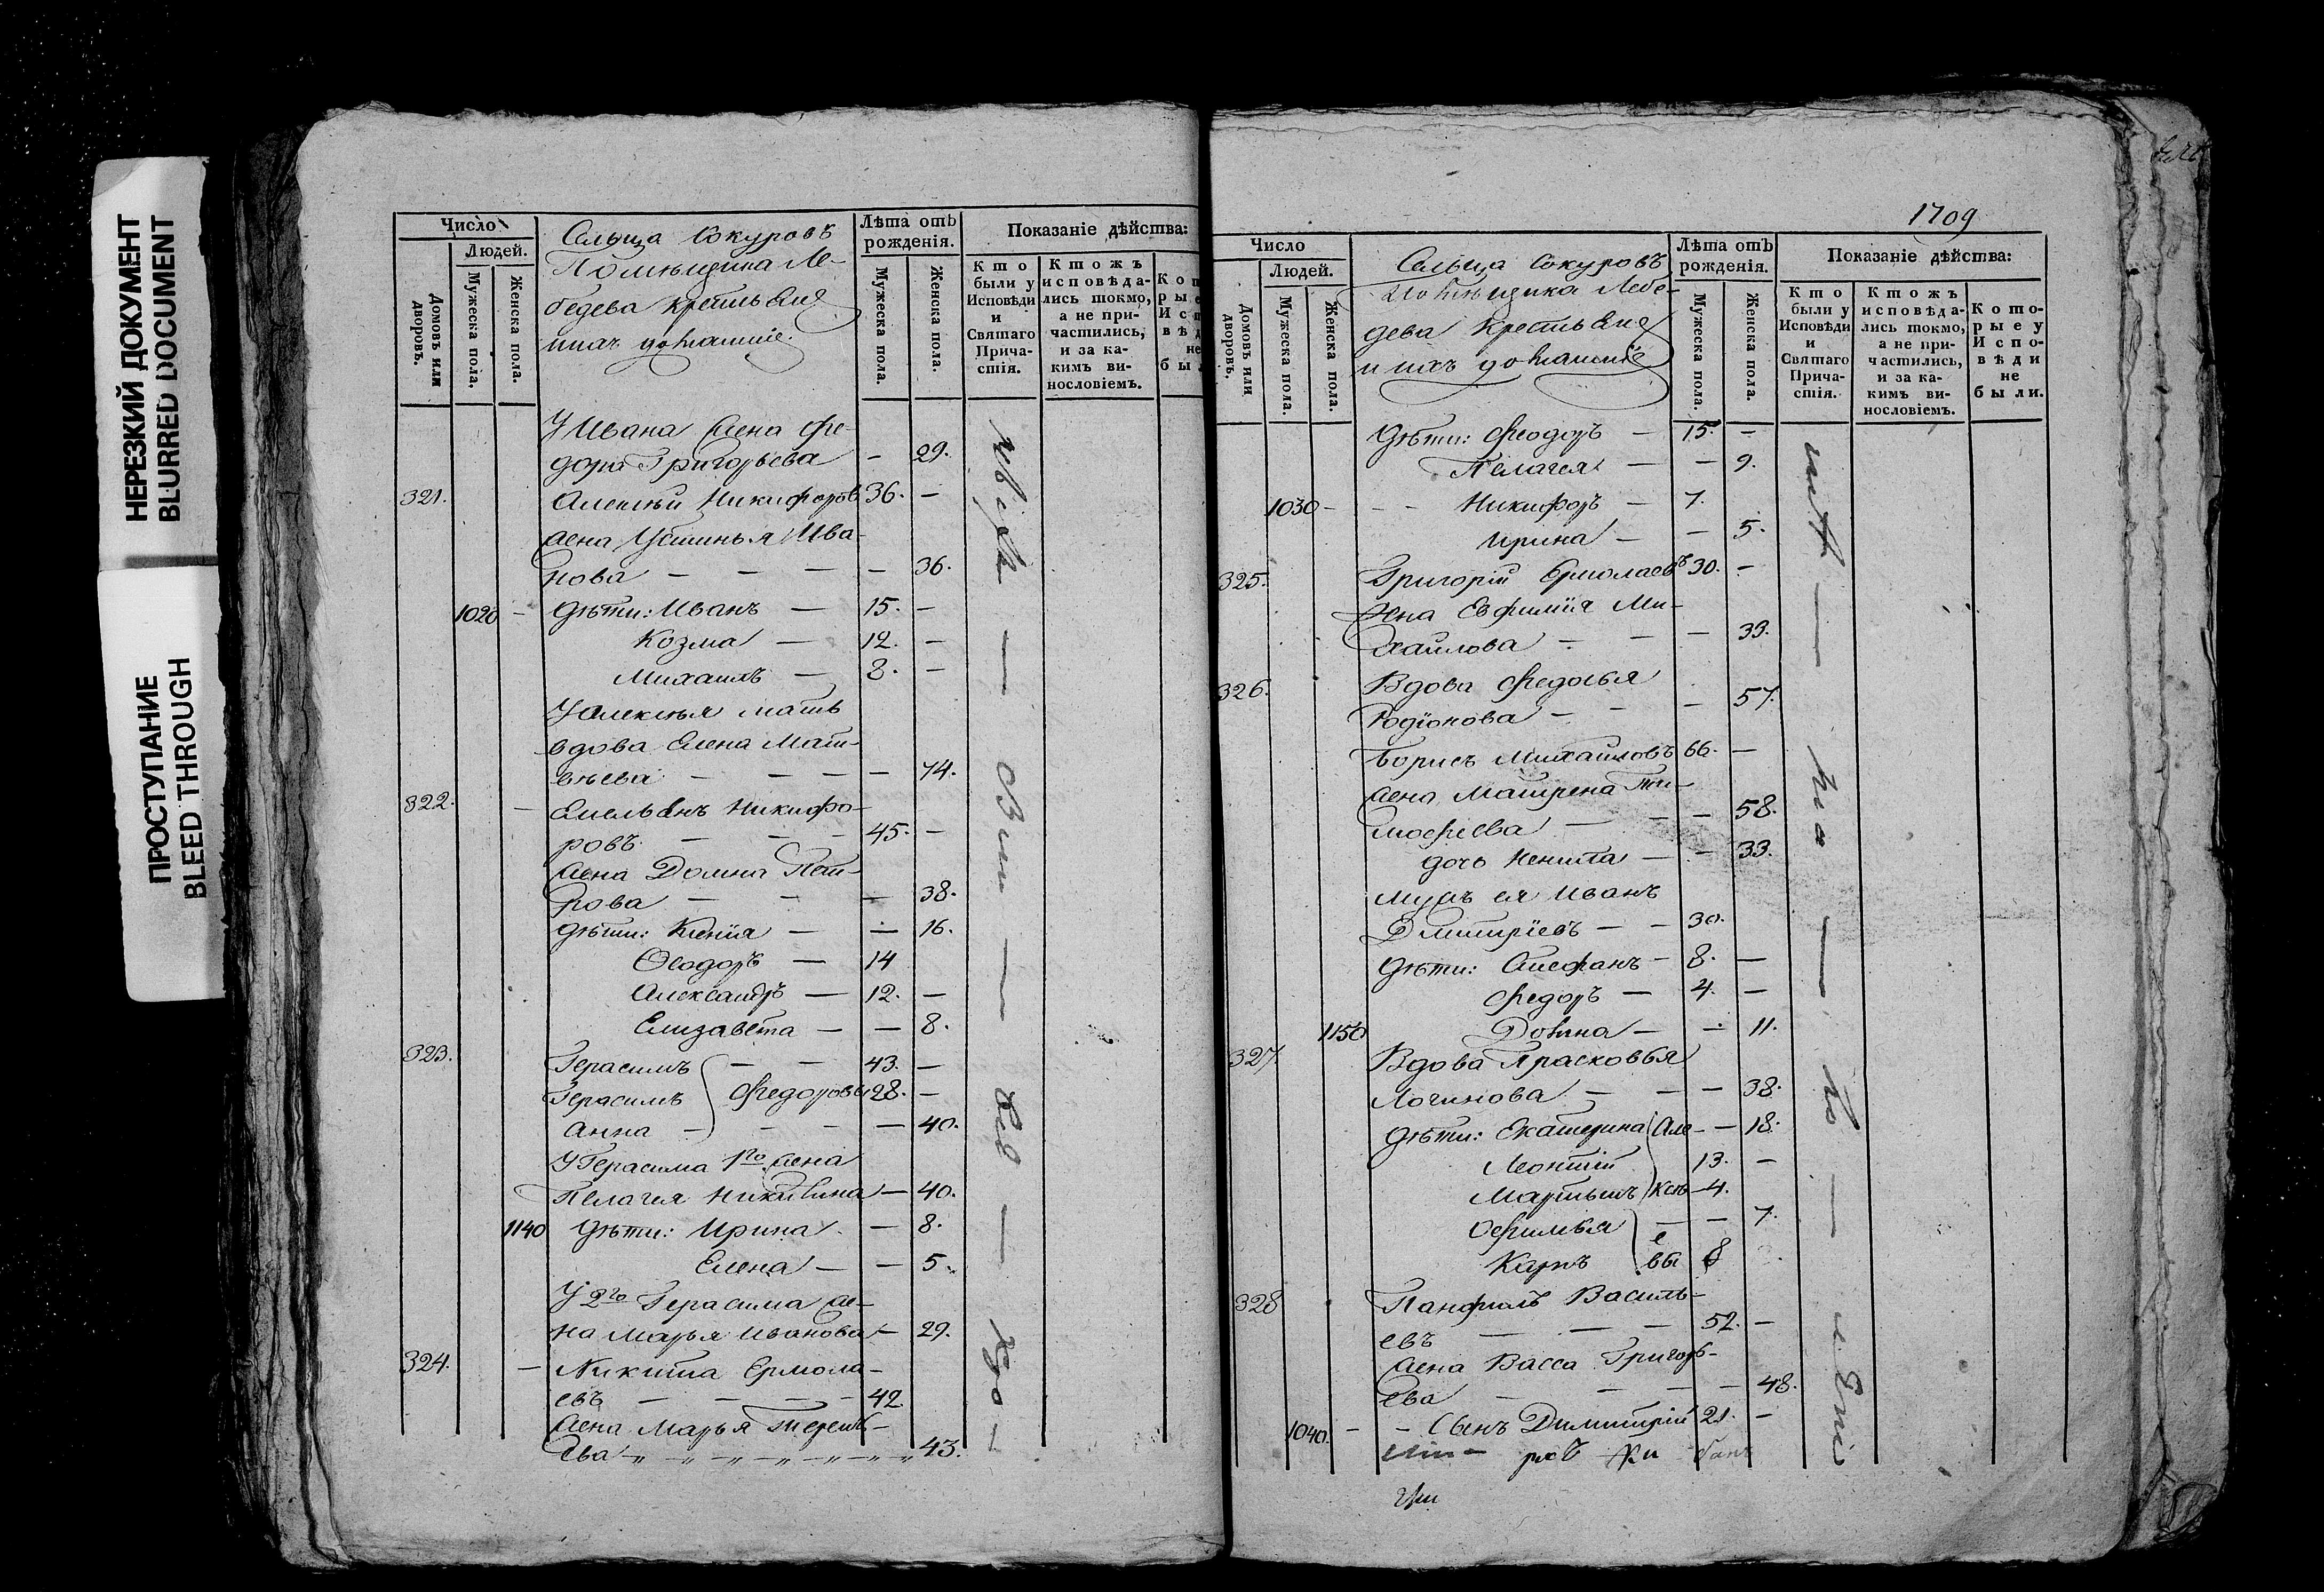 НЕРЕЗКИЙ ДОКУМЕНТ
BLURRED DOCUMENT
ПРОСТУПАНИЕ
BLEED THROUGH
Число
Людей.
Домовъ или дворовъ.
Мужеска пола.
Женска пола.
Сельца Сокуровъ
Помѣщика Ле-
бедева крестьяне
и ихъ домашніе.
Лѣта отъ рожденія.
Мужеска пола.
Женска пола.
Показаніе дѣйства:
Кто были у Исповѣди и Святаго Прича-стія.
Ктожъ исповѣда-лись токмо, а не при-частились, и за ка-кимъ ви-нословіемъ.
У Ивана жена Фе-
дора Григорьева — 29.
321. Алексѣй Никифоровъ 36. —
жена Устинья Ива-
нова — — — — 36.
1020 — дѣти: Иванъ — 15. —
Козма — 12. —
Михаилъ — 8. —
У Алексѣя мать
вдова Елена Мат-
вѣева — — — — 74.
322. — Емельянъ Никифо-
ровъ — — — 45. —
жена Домна Пет-
рова — — — 38.
дѣти: Ксенія — — 16.
Ѳеодоръ — 14
Александръ — 12. —
Елизавета — — 8.
323. Герасимъ — — 43. —
Герасимъ Федоровы 28. —
Анна — — — — 40.
У Герасима 1го жена
Пелагея Никитина — 40.
1140 дѣти: Ирина — 8.
Елена — — 5.
У 2го Герасима же-
на Марья Иванова — 29.
324. — Никита Ермола-
евъ — — — — 42.
жена Марья Терентѣ-
ева 43.
1709
Число
Людей.
Домовъ или дворовъ.
Мужеска пола.
Женска пола.
Сельца Сокуровъ
Помѣщика Лебе-
дева крестьяне
и ихъ домашніе
Лѣта отъ рожденія.
Мужеска пола.
Женска пола.
Показаніе дѣйства:
Кто были у Исповѣди и Святаго Прича-стія.
Ктожъ исповѣда-лись токмо, а не при-частились, и за ка-кимъ ви-нословіемъ.
Кото-рые у Испо-вѣди не были.
дѣти: Феодоръ — 15. —
Пелагея — — 9.
1030 — — — Никифоръ — 7.
Ирина — — 5.
325. Григорій Ермолаевъ 30. —
жена Евфимія Ми-
хайлова — — — 33.
326. Вдова Федосья
Родіонова — — — 57.
Борисъ Михайловъ 66. —
жена Матрена Ти-
мофеева — — — 58.
дочь Ненила — — 33.
мужъ ея Иванъ
Дмитріевъ — — 30.
дѣти: Стефанъ — 8. —
Федоръ — 4. —
1150 Домна — — 11.
327. Вдова Прасковья
Логинова — — — 38.
дѣти: Екатерина Але — 18.
Леонтій 13. —
Мартынъ ксѣ — 4.
Офимья — — 7.
Карпъ е вы 8
328 Панфилъ Василь-
евъ — — — 52. —
жена Васса Григорь-
ева — — — — 48.
1040. — — Сынъ Димитрій 21. —